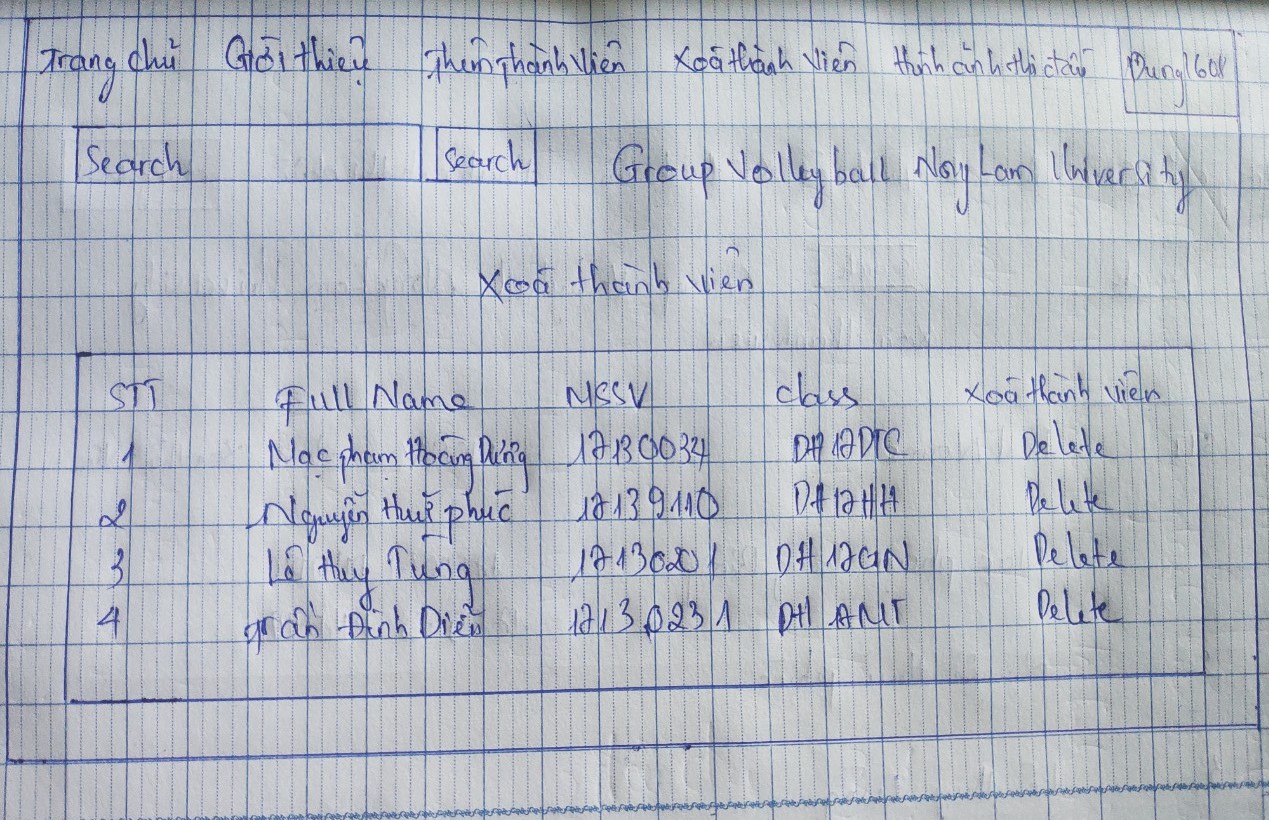 Trang chủ Giới thiệu Thêm Thành Viên Xoá thành viên hình ảnh thi đấu Dung1608
Search Search Group Volleyball Nong Lam University
Xoá thành viên
STT Full Name MSSV class Xoá thành viên
1 Mạc phạm Hoàng Dũng 17130034 DH17DTC Delete
2 Nguyễn Huỳ phúc 17139110 DH17HH Delete
3 Lê Huy Tùng 17130201 DH17GN Delete
4 Trần Đình Diễn 17130231 DH17MT Delete